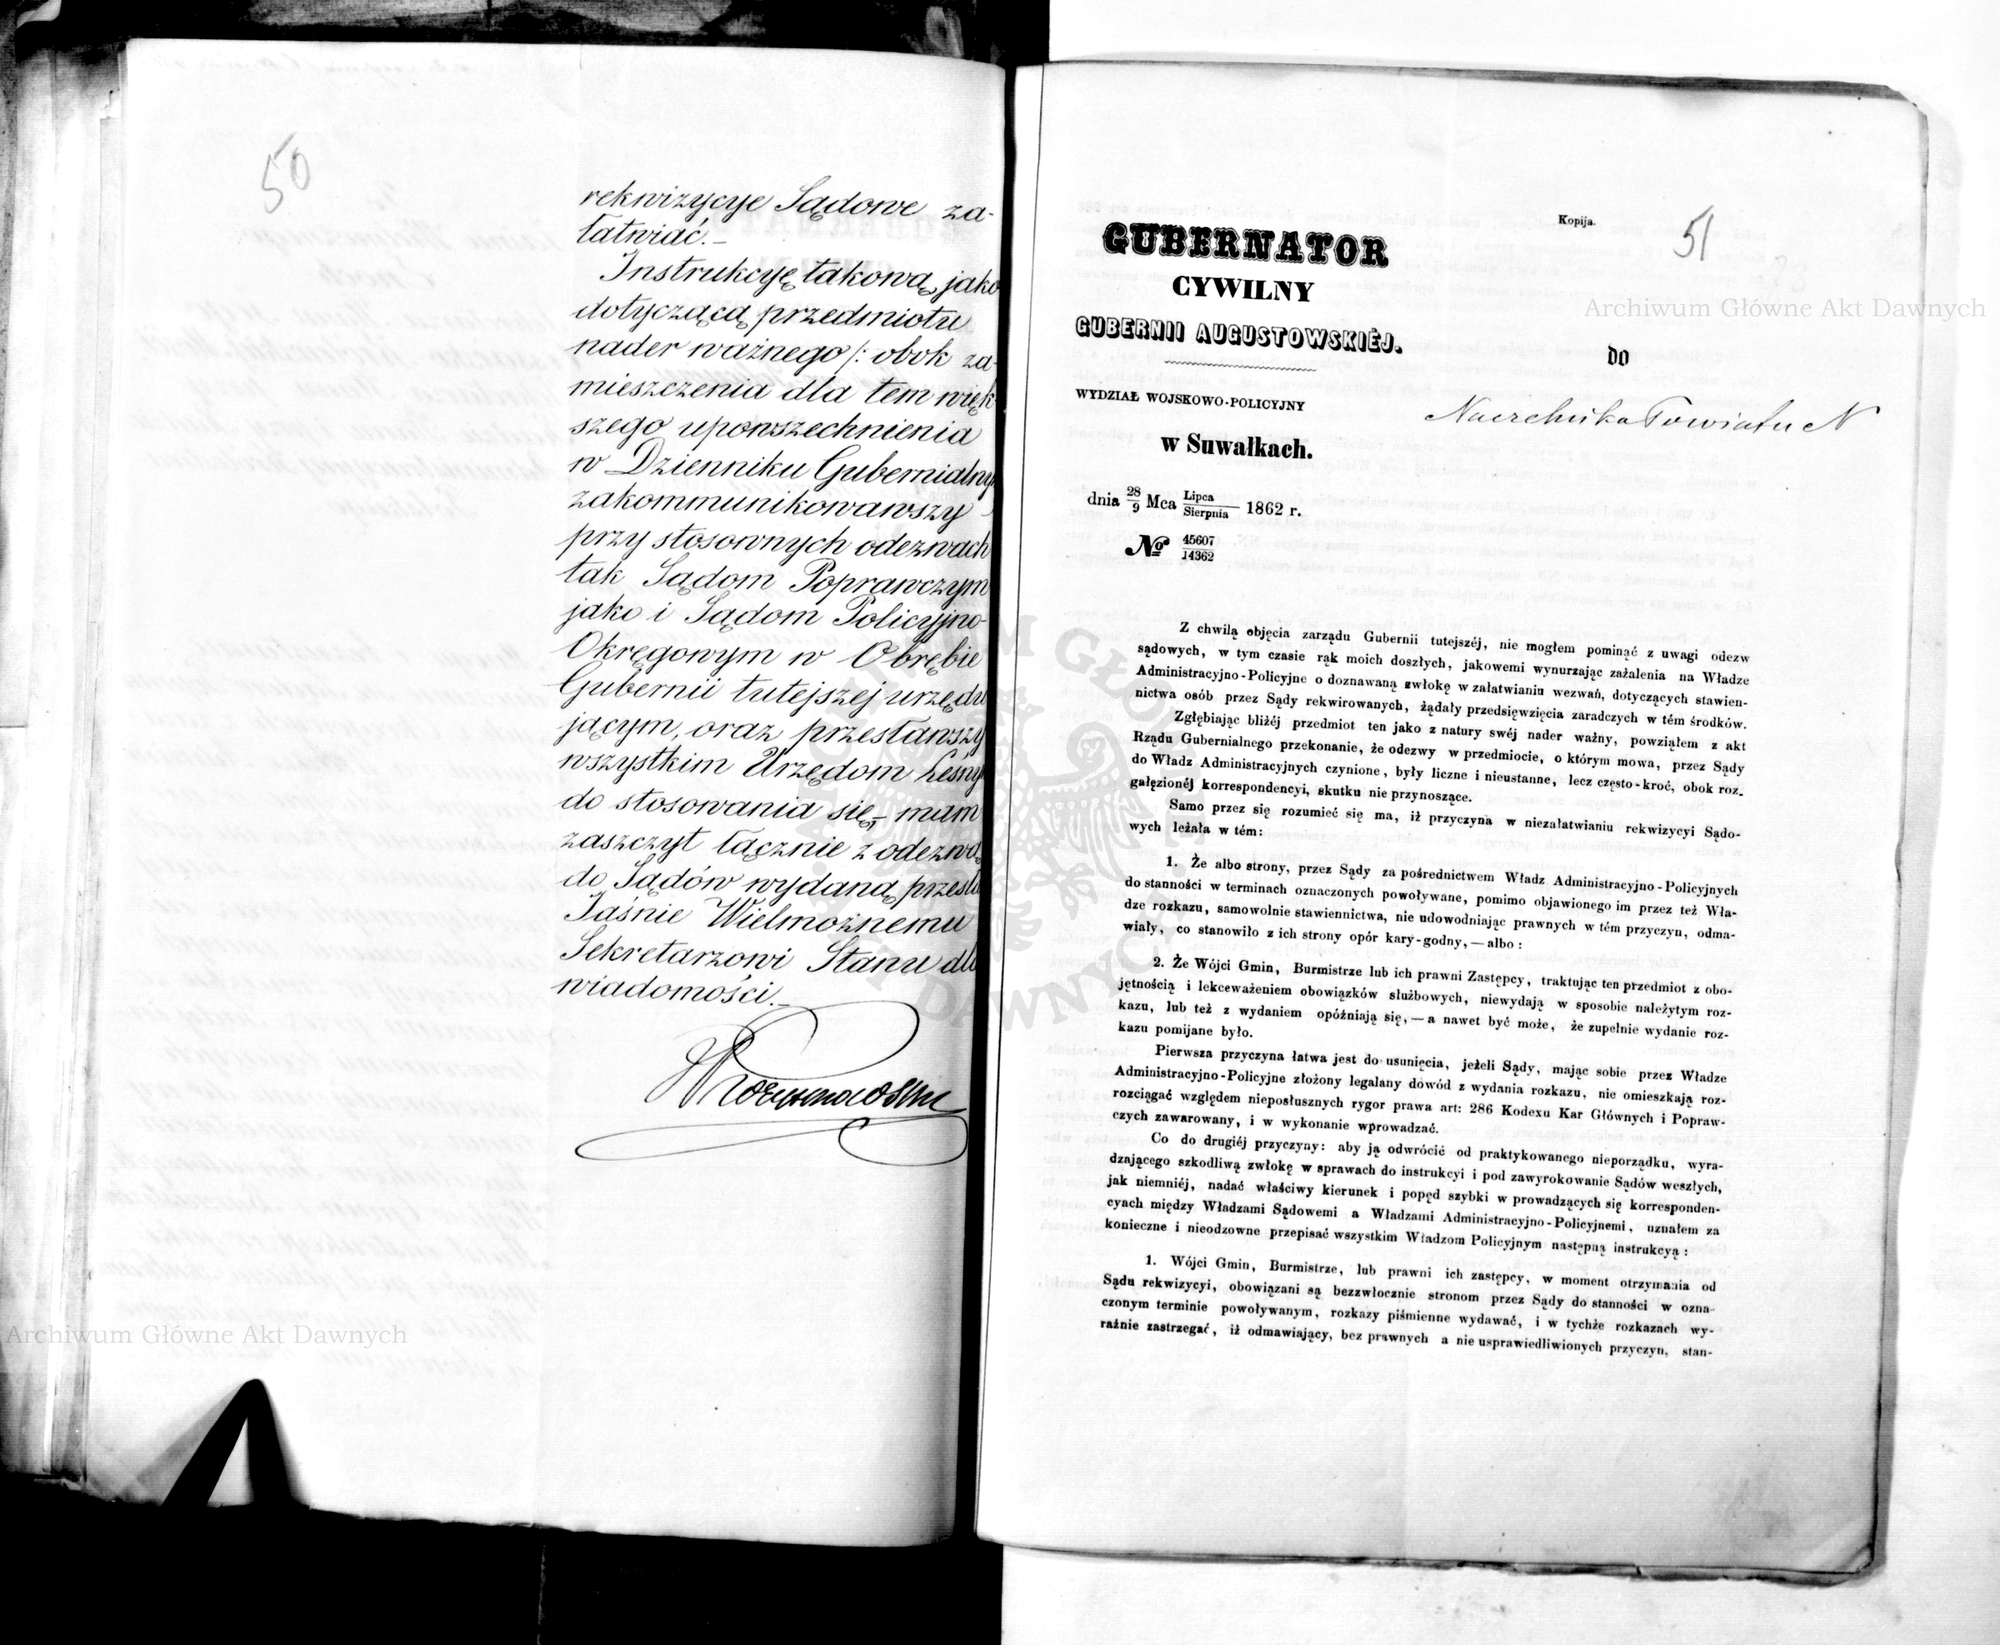 50
rekwizycye Sądowe za-
łatwiać.–
Instrukcyę takową, jako
dotyczącą przedmiotu
nader ważnego /: obok za-
mieszczenia dla tem więk
szego upowszechnienia
w Dzienniku Gubernialny
zakommunikowawszy
przy stosownych odezwach
tak Sądom Poprawczym
jako i Sądom Policyjno-
Okręgowym w Obrębie
Gubernii tutejszej urzędu
jącym, oraz przesławszy
wszystkim Urzędom Leśny
do stosowania się,– mam
zaszczyt łącznie z odezwą
do Sądów wydaną przesła
Jaśnie Wielmożnemu
Sekretarzowi Stanu dla
wiadomości.–
Kopija.
51
GUBERNATOR
CYWILNY
GUBERNII AUGUSTOWSKIÉJ.
WYDZIAŁ WOJSKOWO-POLICYJNY
w Suwałkach.
dnia 28/9 Mca Lipca/Sierpnia 1862 r.
No 45607/14362
DO
Naczelnika Powiatu N
Z chwilą objęcia zarządu Gubernii tutejszéj, nie mogłem pominąć z uwagi odezw
sądowych, w tym czasie rąk moich doszłych, jakowemi wynurzając zażalenia na Władze
Administracyjno-Policyjne o doznawaną zwłokę w załatwianiu wezwań, dotyczących stawien-
nictwa osób przez Sądy rekwirowanych, żądały przedsięwzięcia zaradczych w tém środków.
Zgłębiając bliżéj przedmiot ten jako z natury swéj nader ważny, powziąłem z akt
Rządu Gubernialnego przekonanie, że odezwy w przedmiocie, o którym mowa, przez Sądy
do Władz Administracyjnych czynione, były liczne i nieustanne, lecz często-kroć, obok roz-
gałęzionéj korrespondencyi, skutku nie przynoszące.
Samo przez się rozumieć się ma, iż przyczyna w niezałatwianiu rekwizycyi Sądo-
wych leżała w tém:
1. Że albo strony, przez Sądy za pośrednictwem Władz Administracyjno-Policyjnych
do stanności w terminach oznaczonych powoływane, pomimo objawionego im przez też Wła-
dze rozkazu, samowolnie stawiennictwa, nie udowodniając prawnych w tém przyczyn, odma-
wiały, co stanowiło z ich strony opór kary-godny,—albo:
2. Że Wójci Gmin, Burmistrze lub ich prawni Zastępcy, traktując ten przedmiot z obo-
jętnością i lekceważeniem obowiązków służbowych, niewydają w sposobie należytym roz-
kazu, lub też z wydaniem opóźniają się,—a nawet być może, że zupełnie wydanie roz-
kazu pomijane było.
Pierwsza przyczyna łatwa jest do usunięcia, jeżeli Sądy, mając sobie przez Władze
Administracyjno-Policyjne złożony legalany dowód z wydania rozkazu, nie omieszkają roz-
rozciągać względem nieposłusznych rygor prawa art: 286 Kodexu Kar Głównych i Popraw-
czych zawarowany, i w wykonanie wprowadzać.
Co do drugiéj przyczyny: aby ją odwrócić od praktykowanego nieporządku, wyra-
dzającego szkodliwą zwłokę w sprawach do instrukcyi i pod zawyrokowanie Sądów weszłych,
jak niemniéj, nadać właściwy kierunek i popęd szybki w prowadzących się korresponden-
cyach między Władzami Sądowemi a Władzami Administracyjno-Policyjnemi, uznałem za
konieczne i nieodzowne przepisać wszystkim Władzom Policyjnym następną instrukcyą:
1. Wójci Gmin, Burmistrze, lub prawni ich zastępcy, w moment otrzymania od
Sądu rekwizycyi, obowiązani są bezzwłocznie stronom przez Sądy do stanności w ozna-
czonym terminie powoływanym, rozkazy piśmienne wydawać, i w tychże rozkazach wy-
raźnie zastrzegać, iż odmawiający, bez prawnych a nie usprawiedliwionych przyczyn, stan-
Archiwum Główne Akt Dawnych
Archiwum Główne Akt Dawnych